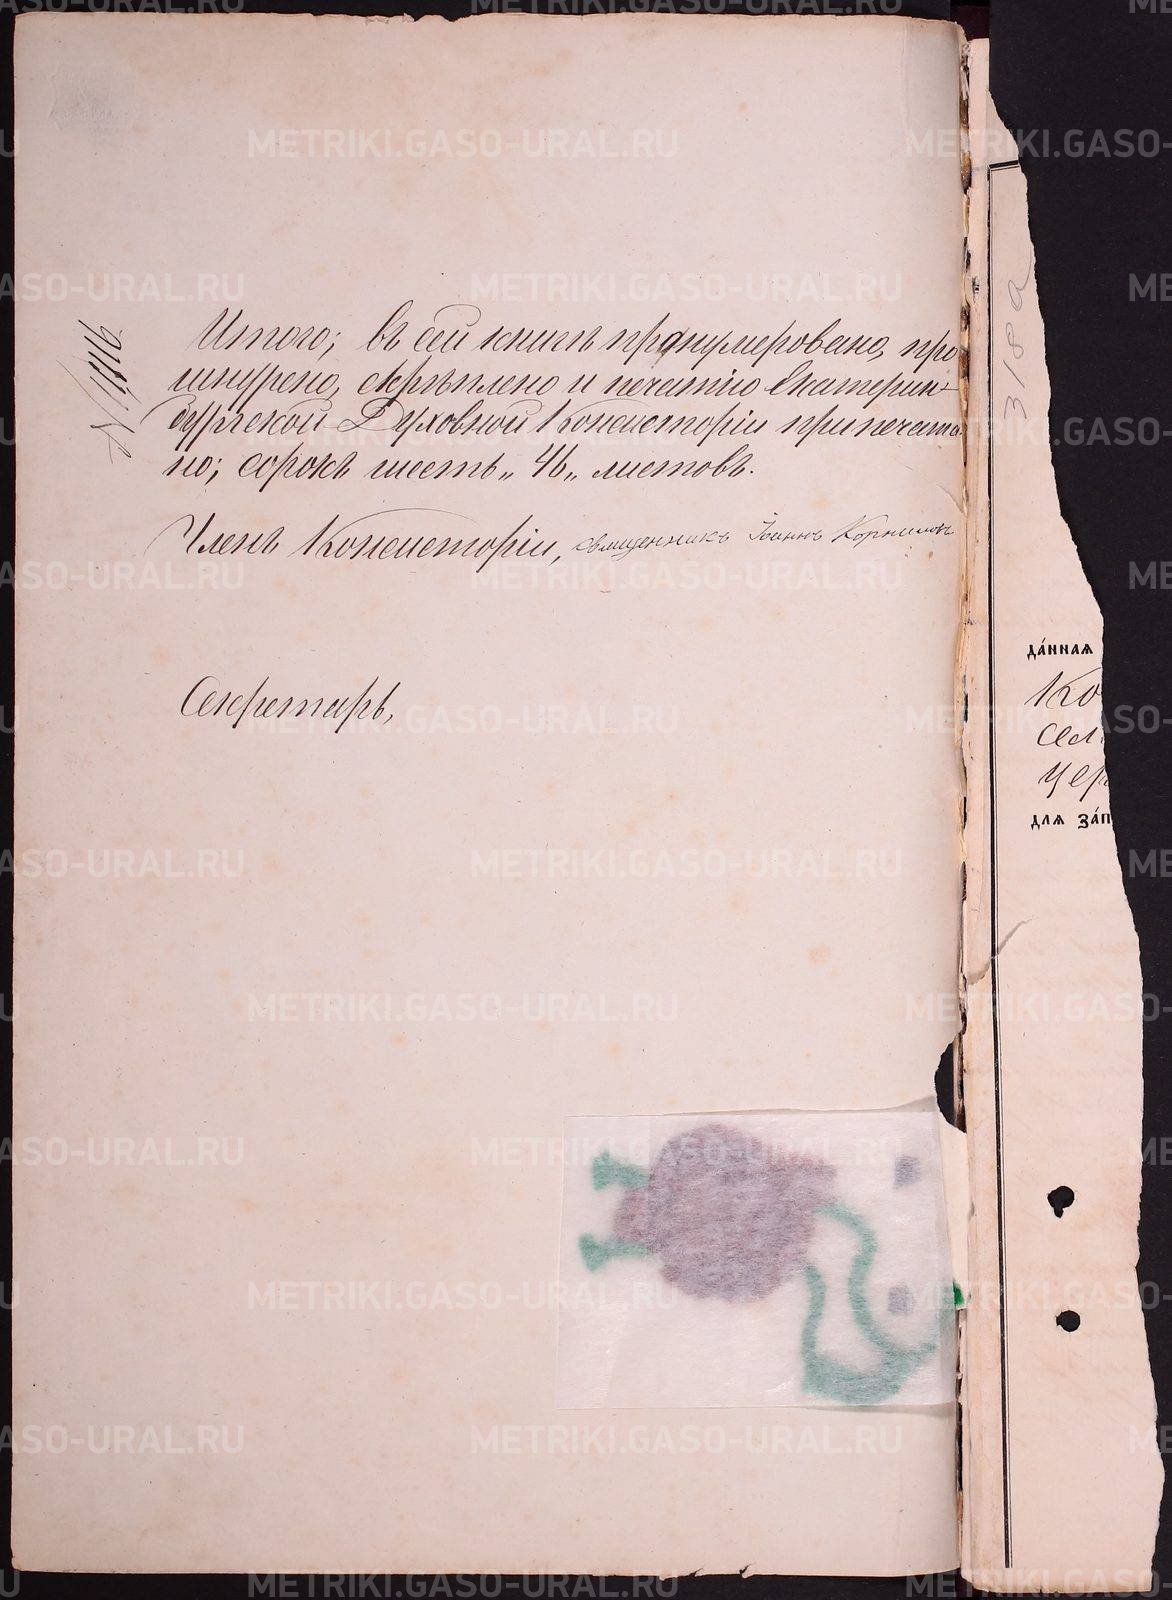 Итого; въ сей книгѣ пронумеровано, про
шнурено, скрѣплено и печатію Екатерин-
бургской Духовной Консисторіи припечата-
но; сорокъ шесть „ 46 „ листовъ.
Членъ Консисторіи, священникъ Іоаннъ Корниловъ
Секретарь,
318а
да́нная
Ко
сел
цер
для за́п
METRIKI.GASO-URAL.RU